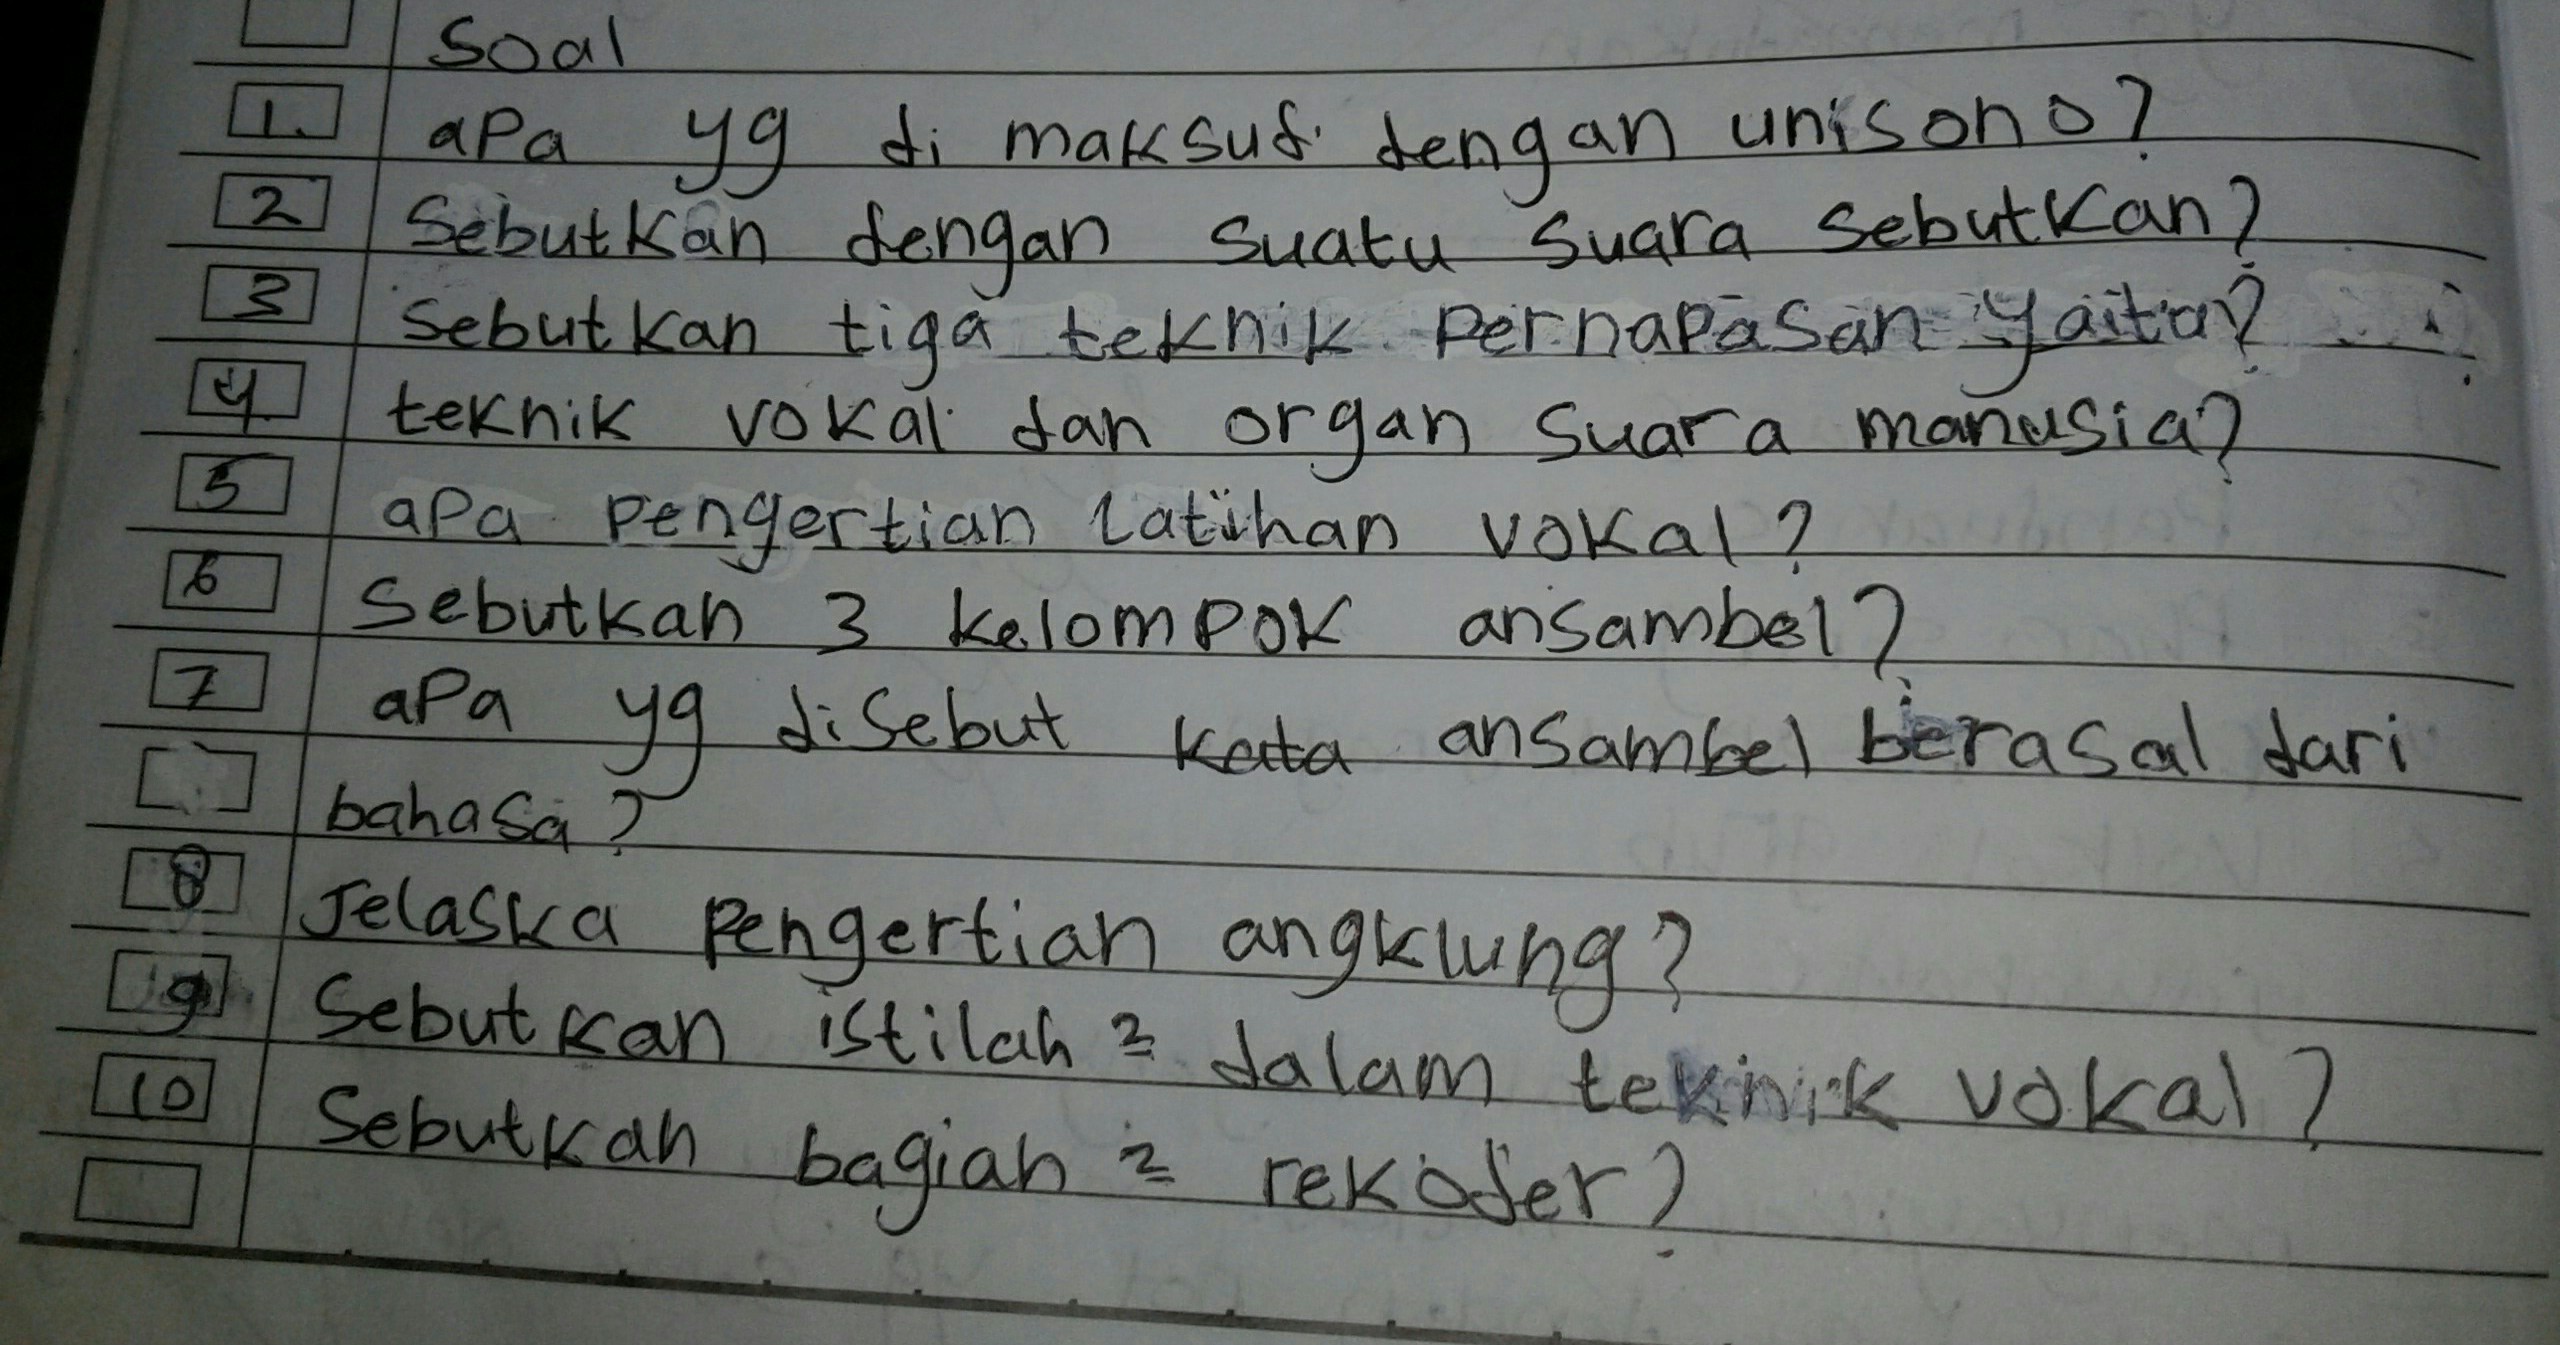 Soal
1. apa yg di maksud dengan unisono?
2 Sebutkan dengan suatu suara sebutkan?
3 Sebutkan tiga teknik pernapasan yaitu?
4 teknik vokal dan organ suara manusia?
5 apa pengertian latihan vokal?
6 Sebutkan 3 kelompok ansambel?
7 apa yg disebut kata ansambel berasal dari
bahasa?
8 Jelaska pengertian angklung?
9 Sebutkan istilah 2 dalam teknik vokal?
10 Sebutkan bagian 2 rekoder?